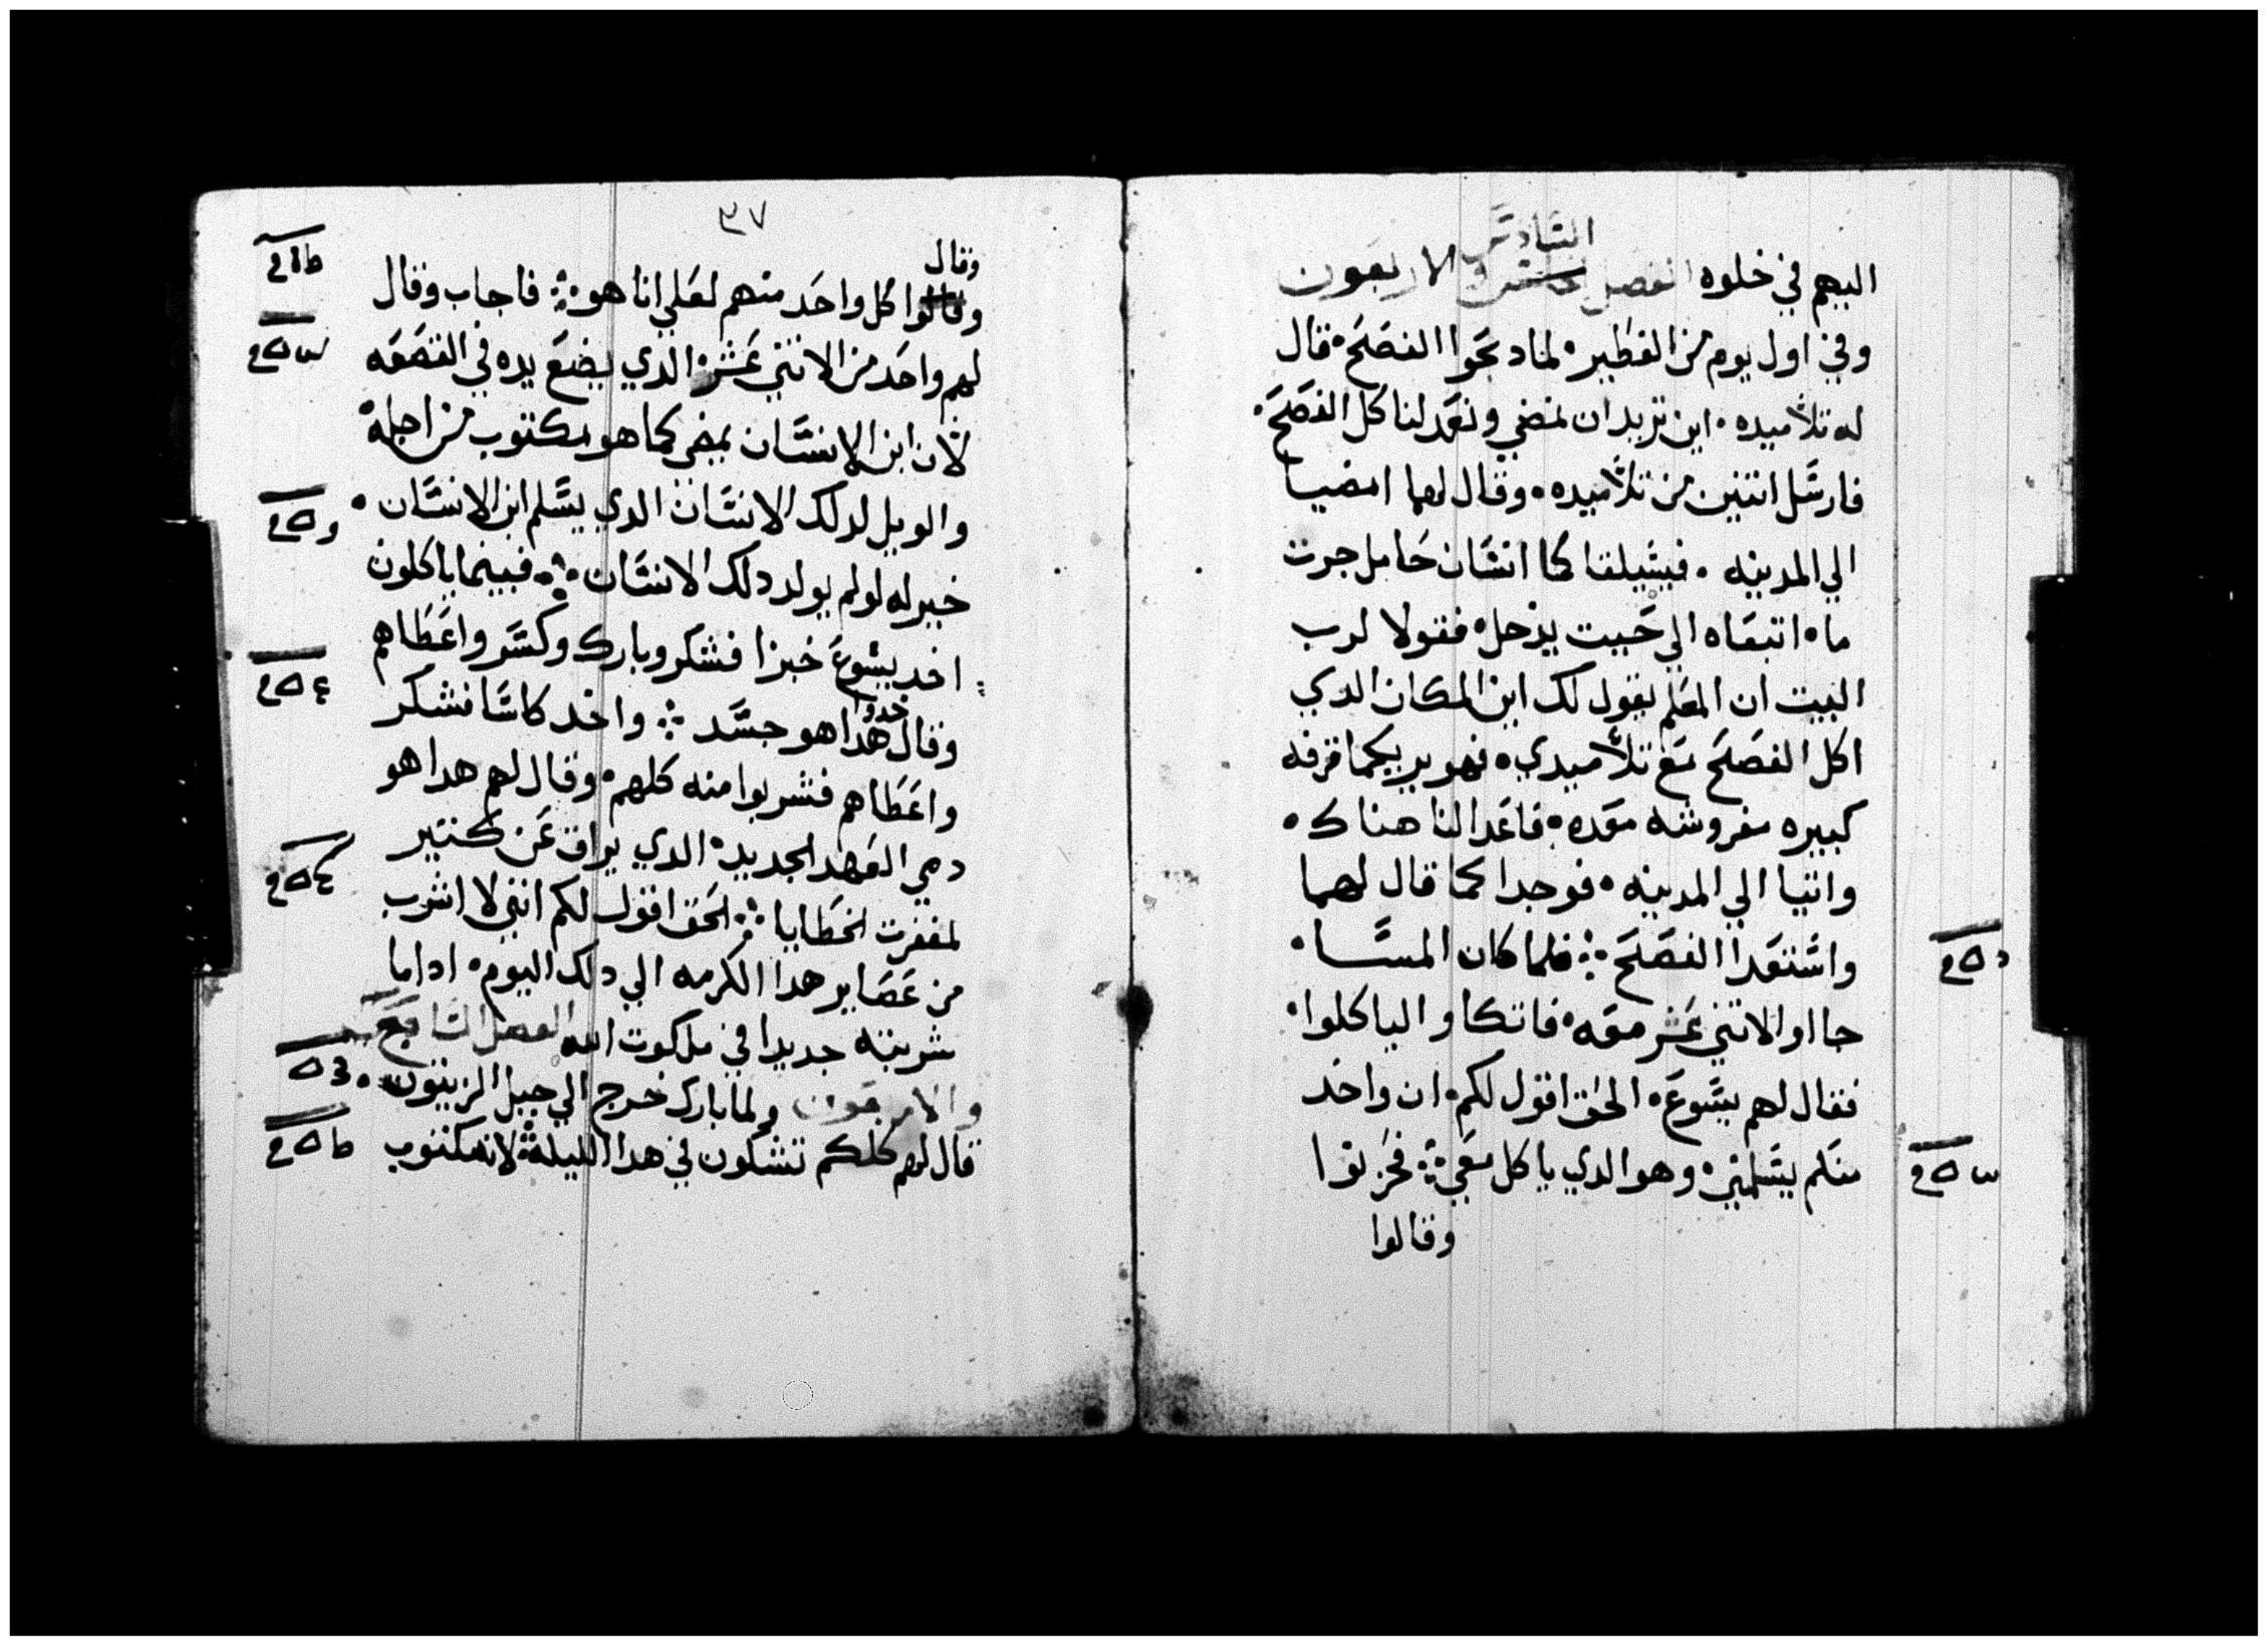 السادس
اليهم في خلوه الفصل الخامس والاربعون
وفي اول يوم من الفطير • لما دبحوا الفصح • قال
له تلاميده • اين تريد ان نمضي ونعد لنا كل الفصح •
فارسل اتنين من تلاميده • وقال لهما امضيا
الي المدينه • فسيلقا كما انسان حامل جرت
ماء اتبعاه الي حيت يدخل • فقولا لرب
البيت ان المعلم يقول لك اين المكان الدي
اكل الفصح مع تلاميدي • فهو يريكما غرفه
كبيره مفروشه معده • فاعدا لنا هناك •
واتيا الي المدينه • فوجدا كما قال لهما
واستعدا الفصح ܀ فلما كان المسا •
جااو الاتني عشر معه • فاتكاو الياكلوا •
فقال لهم يسوع • الحق اقول لكم • ان واحد
منكم يسلمني • وهو الدي ياكل معي ܀ فحزنوا
وقالوا
٣٧
وقال
وقالوا كل واحد منهم لعلي انا هو ܀ فاجاب وقال
لهم واحد من الاتني عشر • الدي يضع يده في القصعه
لان ابن الانسان يمضي كما هو مكتوب من اجله •
والويل لدلك الانسان الدي يسلم ابن الانسان •
خير له لو لم يولد دلك الانسان ܀ فبينما ياكلون
اخد يسوع خبزا فشكر وبارك وكسر واعطاهم
خدوا
وقال هدا هو جسد ܀ واخد كاسا فشكر
واعطاهم فشربوا منه كلهم • وقال لهم هدا هو
دمي العهد الجديد • الدي يراق عن كتير
لمغفرت الخطايا ܀ الحق اقول لكم انني لا اشرب
من عصاير هدا الكرمه الي دلك اليوم • ادا ما
شربته جديدا في ملكوت الله الفصل السابع
والاربعون ولما بارك خرج الي جبل الزيتون •
قال لهم كلكم تشكون في هدا الليله • لانه مكتوب